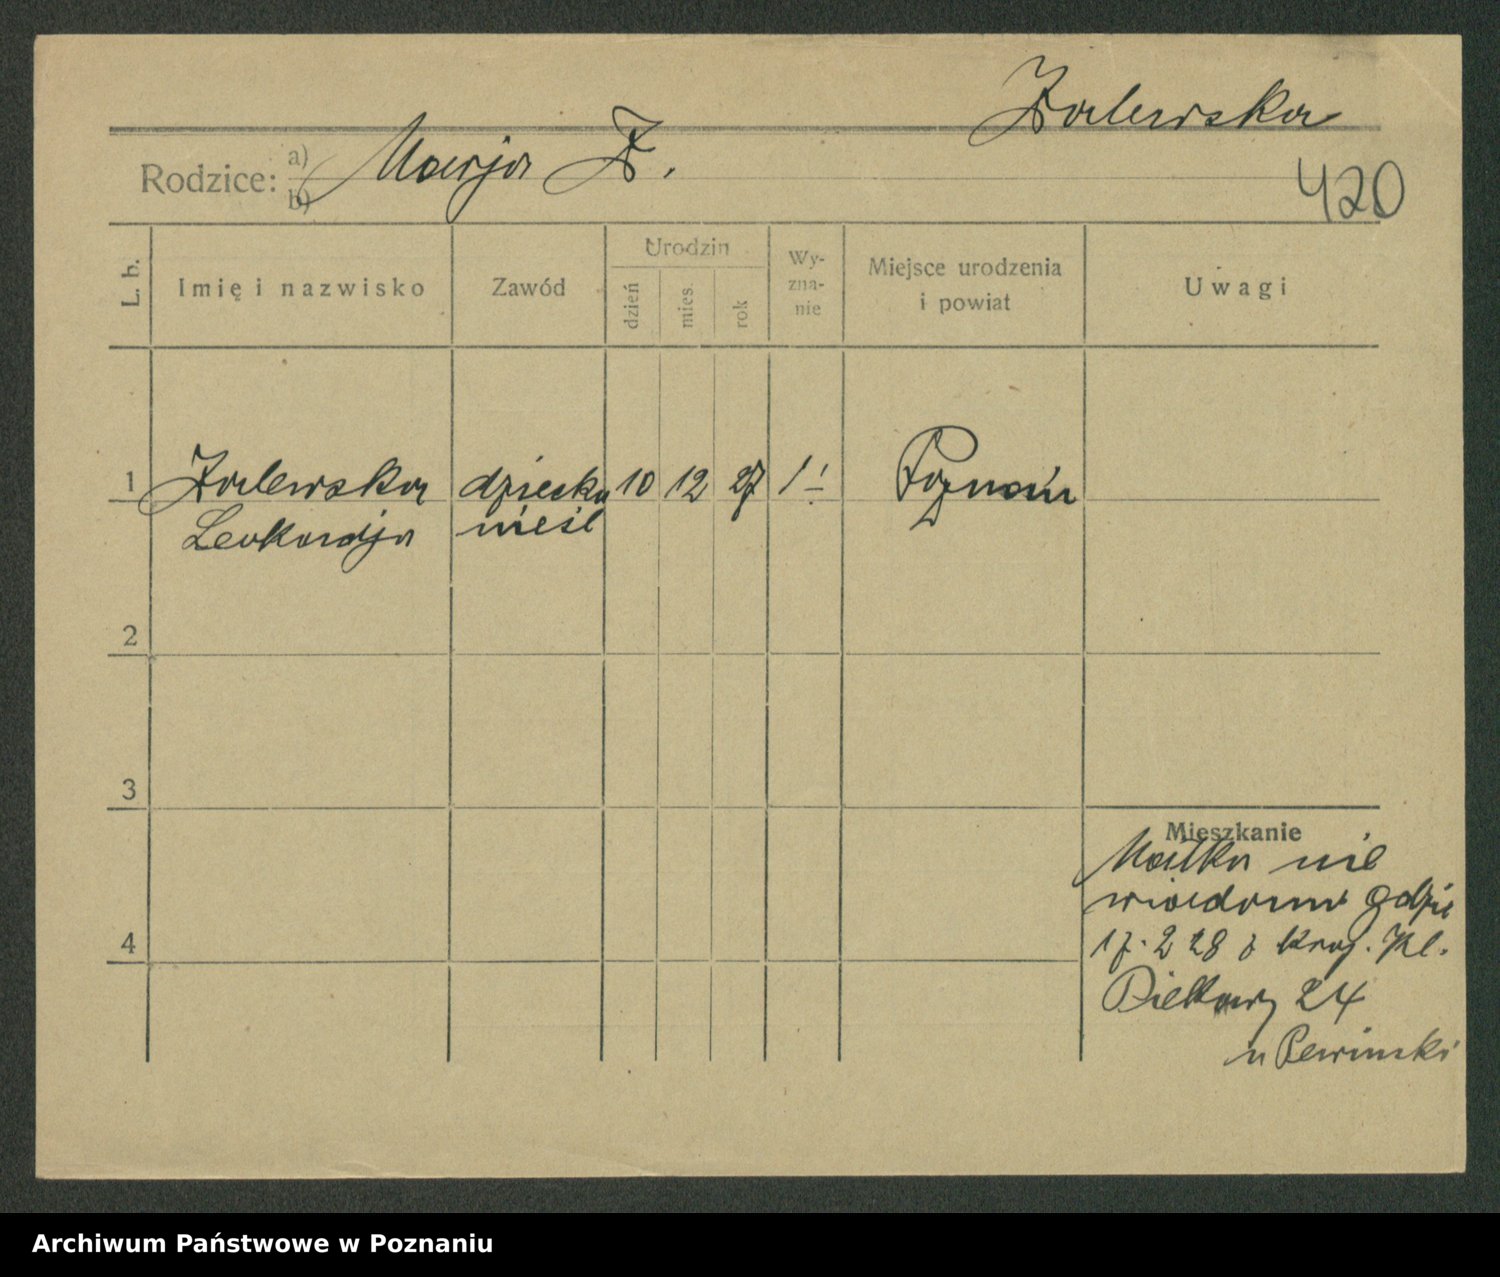 Zalewska
Rodzice: a) Marja Z.
b)
420
L. b.
Imię i nazwisko
Zawód
Urodzin
dzień
mies.
rok
Wy-
zna-
nie
Miejsce urodzenia
i powiat
Uwagi
1 Zalewska dziecko 10 12 27 Poznań
Leokardja nieśl
2
3
Mieszkanie
Matka nie
wiadomo gdzie
4
17. 2 28 z
24
u Pewinski
Archiwum Państwowe w Poznaniu